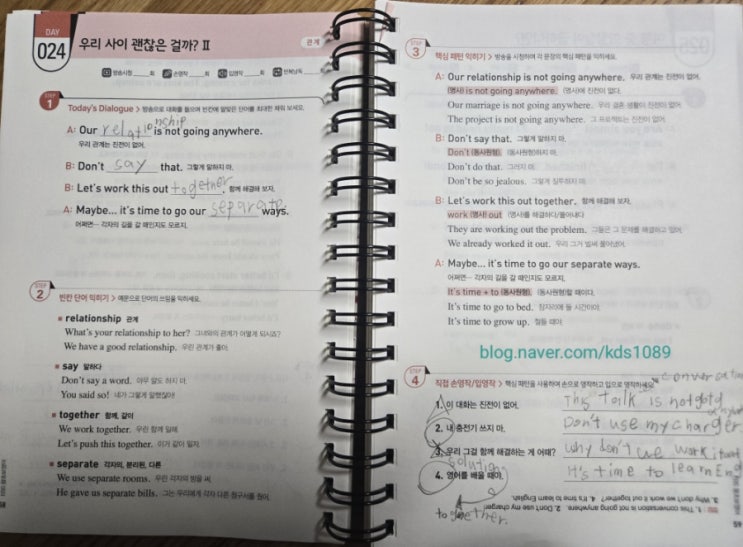 DAY
024
우리 사이 괜찮은 걸까? II
관계
방송시청 회
손영작 회
입영작 회
반복낭독 회
STEP
1
Today's Dialogue > 방송으로 대화를 들으며 빈칸에 알맞은 단어를 최대한 채워 보세요.
A: Our relationship is not going anywhere.
우리 관계는 진전이 없어.
B: Don't say that. 그렇게 말하지 마.
B: Let's work this out together. 함께 해결해 보자.
A: Maybe... it's time to go our separate ways.
어쩌면… 각자의 길을 갈 때인지도 모르지.
STEP
2
빈칸 단어 익히기 > 예문으로 단어의 쓰임을 익히세요.
relationship 관계
What's your relationship to her? 그녀와의 관계가 어떻게 되시죠?
We have a good relationship. 우린 관계가 좋아.
say 말하다
Don't say a word. 아무 말도 하지 마.
You said so! 네가 그렇게 말했잖아!
together 함께, 같이
We work together. 우린 함께 일해.
Let's push this together. 이거 같이 밀자.
separate 각자의, 분리된, 다른
We use separate rooms. 우린 각자의 방을 써.
He gave us separate bills. 그는 우리에게 각자 다른 청구서를 줬어.
STEP
3
핵심 패턴 익히기 > 방송을 시청하며 각 문장의 핵심 패턴을 익히세요.
A: Our relationship is not going anywhere. 우리 관계는 진전이 없어.
(명사) is not going anywhere. (명사)에 진전이 없다.
Our marriage is not going anywhere. 우리 결혼 생활이 진전이 없어.
The project is not going anywhere. 그 프로젝트는 진전이 없어.
B: Don't say that. 그렇게 말하지 마.
Don't (동사원형). (동사원형)하지 마.
Don't do that. 그러지 마.
Don't be so jealous. 그렇게 질투하지 마.
B: Let's work this out together. 함께 해결해 보자.
work (명사) out (명사)를 해결하다/풀어내다
They are working out the problem. 그들은 그 문제를 해결하고 있어.
We already worked it out. 우리 그거 벌써 풀어냈어.
A: Maybe... it's time to go our separate ways.
어쩌면… 각자의 길을 갈 때인지도 모르지.
It's time + to (동사원형). (동사원형)할 때이다.
It's time to go to bed. 잠자리에 들 시간이야.
It's time to grow up. 철들 때야.
blog.naver.com/kds1089
STEP
4
직접 손영작/입영작 > 핵심 패턴을 사용하여 손으로 영작하고 입으로 영작하세요.
conversation
1. 이 대화는 진전이 없어. This talk is not
2. 내 충전기 쓰지 마. Don't use my charger
3. 우리 그걸 함께 해결하는 게 어때? why don't we work it out
solution
4. 영어를 배울 때야. It's time to learn En
together.
1. This conversation is not going anywhere. 2. Don't use my charger.
3. Why don't we work it out together? 4. It's time to learn English.